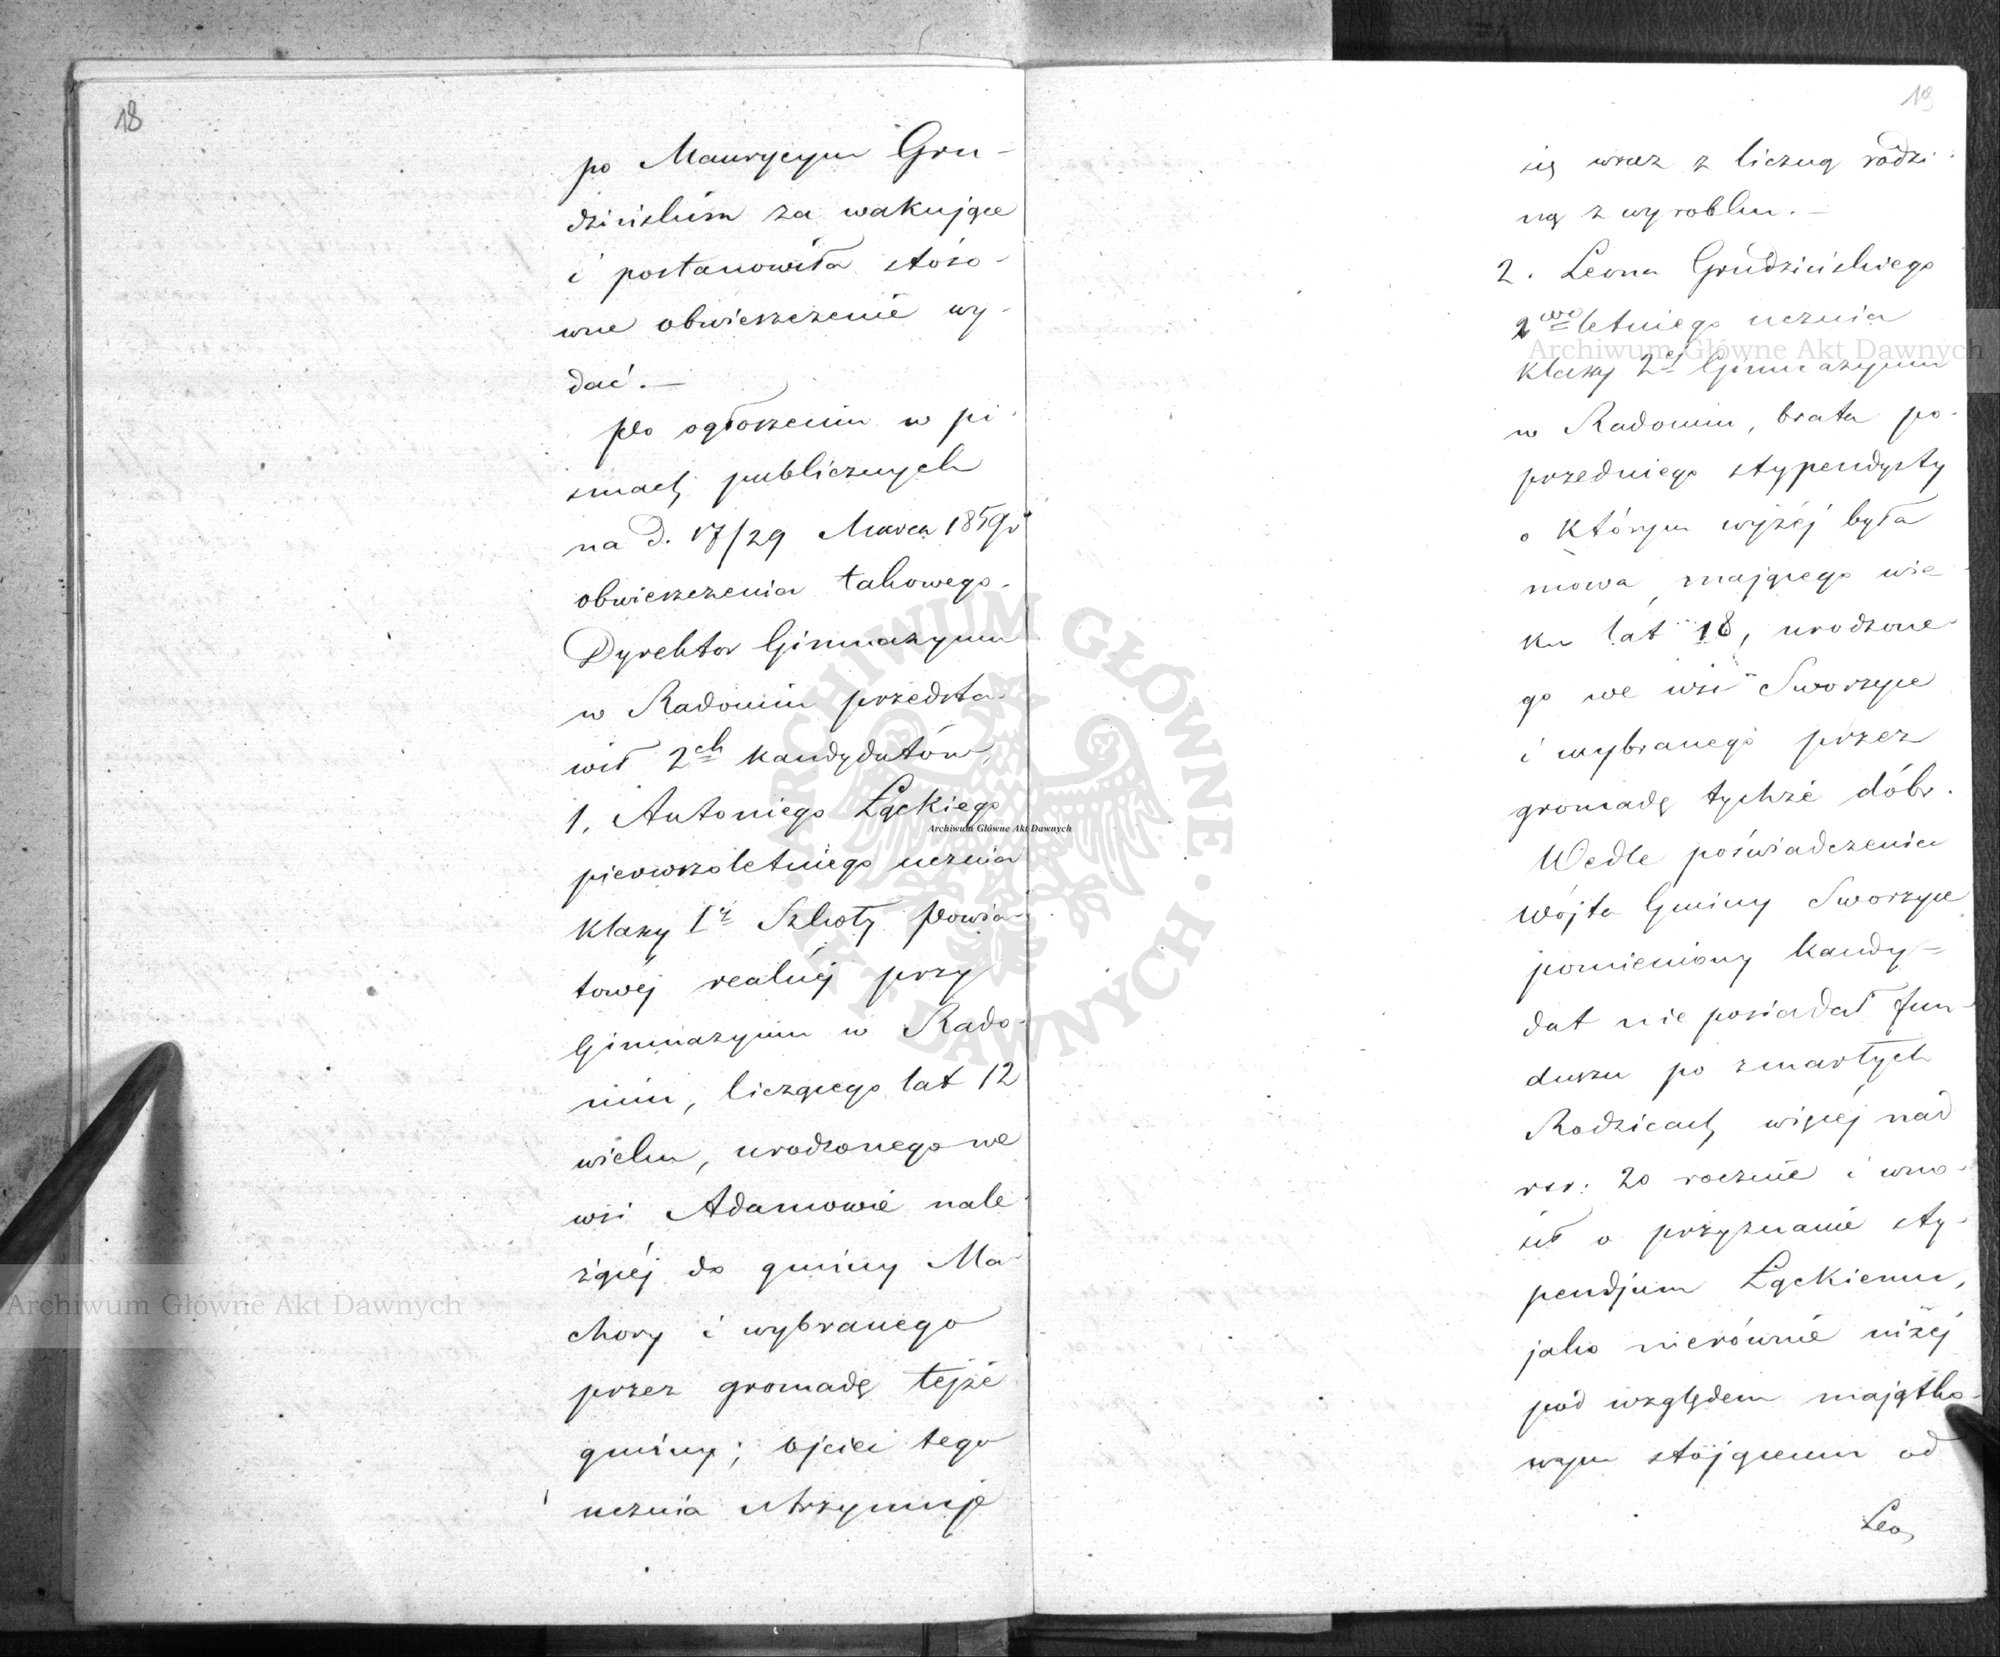 18
po Maurycym Gru-
dzińskim za wakujące
i postanowiła stóso-
wne obwieszczenie wy-
dać. —
Po ogłoszeniu w pi-
smach publicznych
na d. 17/29 Marca 1859 r
obwieszczenia takowego
Dyrektor Gimnazyum
w Radomiu przedsta-
wił 2ch kandydatów,
1. Antoniego Łąckiego
pierwszoletniego ucznia
klassy Iéj Szkoły Powia-
towéj realnéj przy
Gimnazyum w Rado-
miu, liczącego lat 12
wieku, urodzonego we
wsi Adamowie nale
żącéj do gminy Ma-
chory i wybranego
przez gromadę tejże
gminy; ojciec tego
ucznia utrzymuje
19
się wraz z liczną rodzi-
ną z wyrobku. —
2. Leona Grudzińskiego
2go letniego ucznia
klassy 2éj Gimnazyum
w Radomiu, brata po-
przedniego stypendysty
o którym wyżéj była
mowa, mającego wie
ku lat 18, urodzone-
go we wsi Sworzyce
i wybranego przez
gromadę tychże dóbr.
Wedle poświadczenia
Wójta Gminy Sworzyce
pomieniony kandy-
dat nie posiadał fun-
duszu po zmarłych
Rodzicach więcéj nad
rsr: 20 rocznie i wno-
sił o przyznanie sty-
pendjum Łąckiemu,
jako nierównie niżéj
pod względem majątko-
wym stojącemu od
Leo,
Archiwum Główne Akt Dawnych
Archiwum Główne Akt Dawnych
Archiwum Główne Akt Dawnych
ARCHIWUM GŁÓWNE · AKT DAWNYCH ·